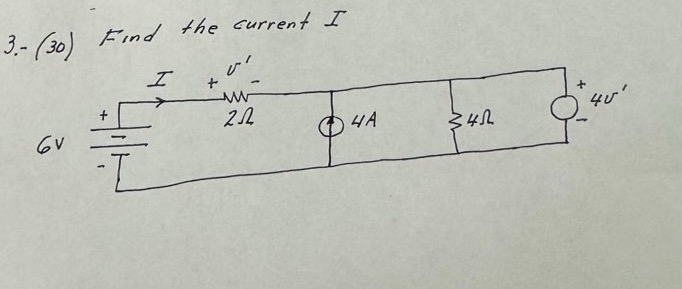 3.- (30) Find the current I
I + v' -
2Ω
+ 6V -
4A
4Ω
+ 4v' -